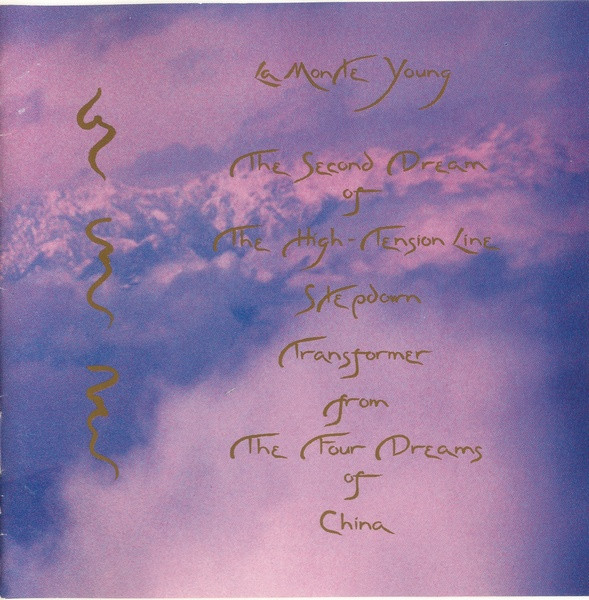 La Monte Young
The Second Dream
of
The High-Tension Line
Stepdown
Transformer
from
The Four Dreams
of
China